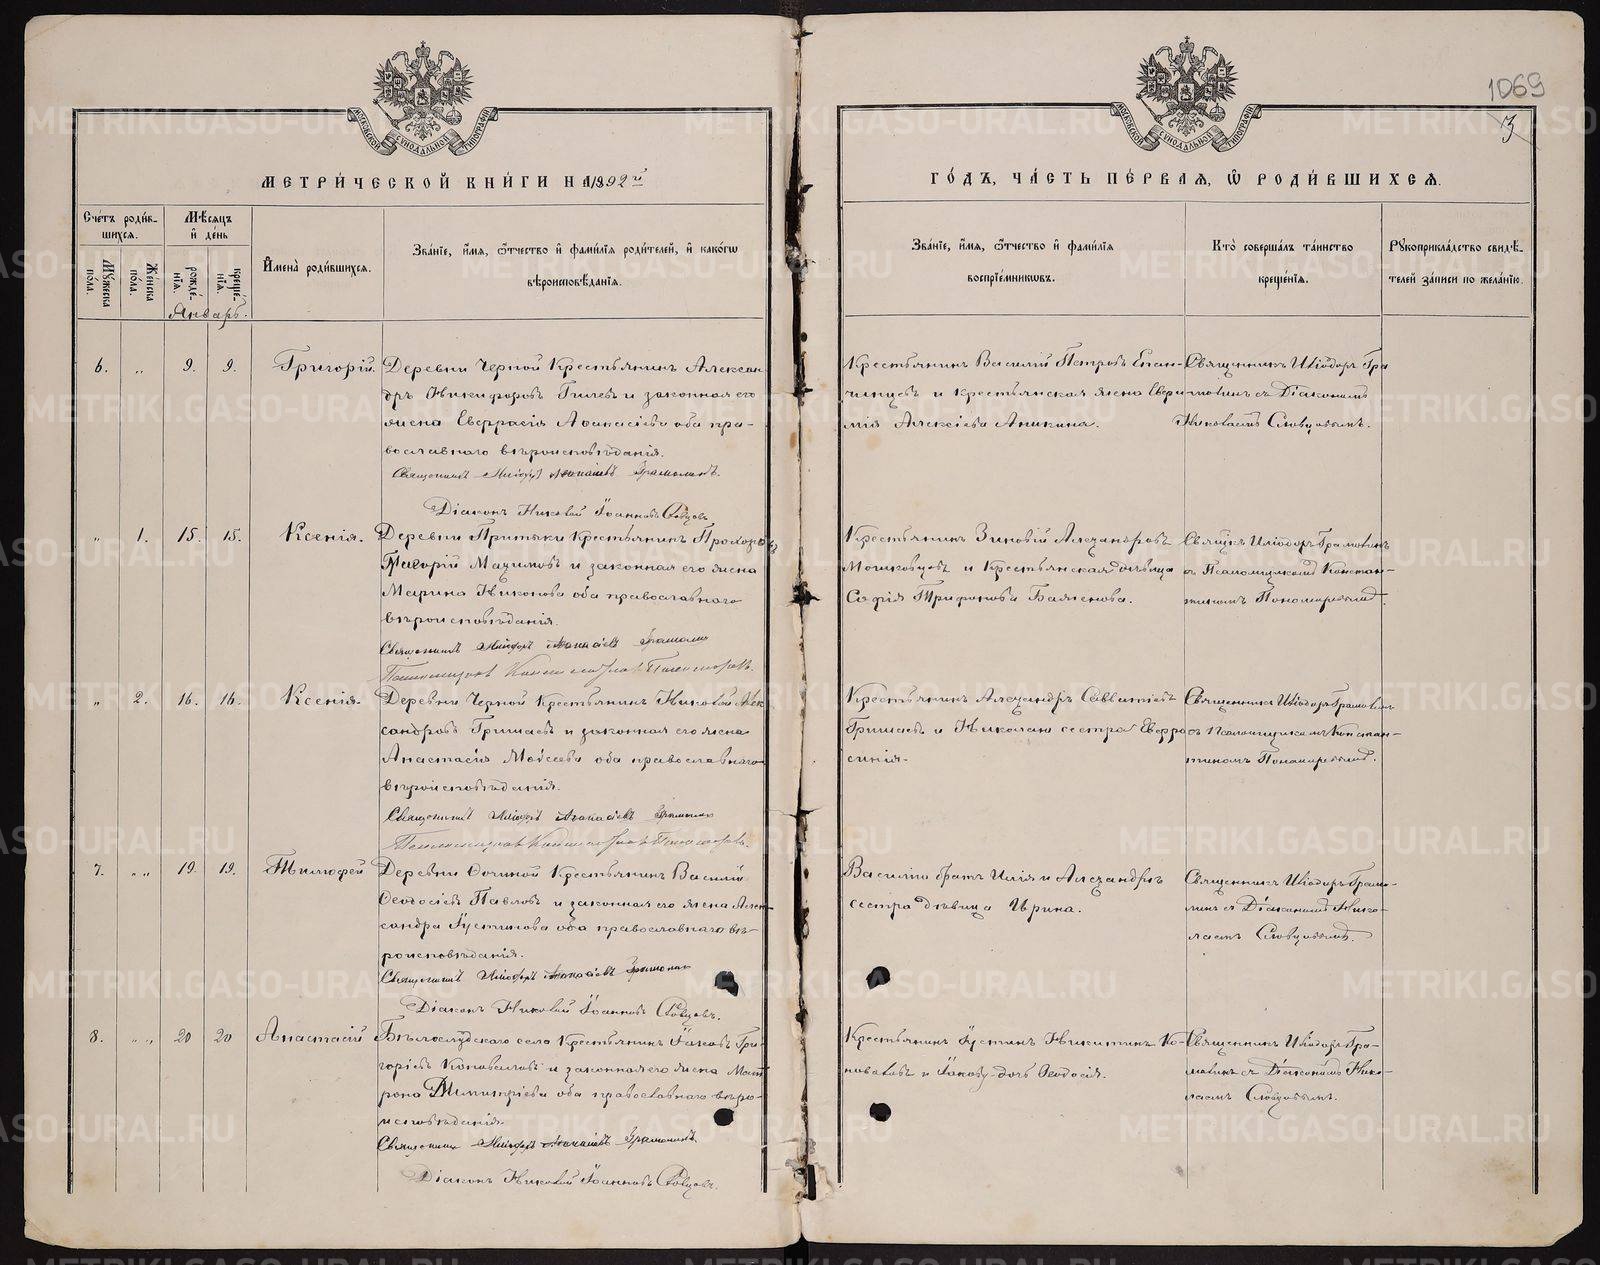 1069
3
МОСКОВСКОЙ СѴНОДАЛЬНОЙ ТИПОГРАФІИ
МОСКОВСКОЙ СѴНОДАЛЬНОЙ ТИПОГРАФІИ
МЕТРИ́ЧЕСКОЙ КНИ́ГИ НА 1892й
ГО́ДЪ, ЧА́СТЬ ПЕ́РВАЯ, Ѡ РОДИ́ВШИХСЯ.
Сче́тъ роди́в-
шихся.
Мѣ́сяцъ
и де́нь
Имена̀ роди́вшихся.
Зва́нїе, и́мя, ѻ́тчество и фами́лїя роди́телей, и како́гѡ
вѣроисповѣ́данїя.
Му́жеска
по́ла.
Же́нска
по́ла.
рожде́-
нїя.
креще́-
нїя.
Январь.
Зва́нїе, и́мя, ѻ́тчество и фами́лїя
воспрїе́мникѡвъ.
Кто̀ соверша́лъ та́инство
креще́нїя.
Рукоприкла́дство свидѣ́-
телей за́писи по жела́нїю.
6. „ 9. 9. Григорій. Деревни Черной Крестьянинъ Алексан-
дръ Никифоровъ Гилевъ и законная его
жена Евпраксія Аѳанасіева оба пра-
вославнаго вѣроисповѣданія.
Священникъ Иліодоръ Аѳанасіевъ Грамолинъ.
Діаконъ Николай Іоанновъ Словцовъ
Крестьянинъ Василій Петровъ Епан-
чинцевъ и крестьянская жена Евфи-
мія Алексіева Аникина.
Священникъ Иліодоръ Гра
молинъ съ Діакономъ
Николаемъ Словцовымъ.
„ 1. 15. 15. Ксенія. Деревни Притыки Крестьянинъ Прохоровъ
Григорій Мазимовъ и законная его жена
Марина Никонова оба православнаго
вѣроисповѣданія.
Священникъ Иліодоръ Аѳанасіевъ Грамолинъ
Псаломщикъ Константинъ Пономаревъ.
Крестьянинъ Зиновій Александровъ
и Крестьянская дѣвица
Софія Трифонова Баженова.
Свящнкъ Иліодоръ Грамолинъ
съ Псаломщикомъ Констан-
тиномъ Пономаревымъ.
„ 2. 16. 16. Ксенія. Деревни Черной Крестьянинъ Николай Алек
сандровъ Гришаевъ и законная его жена
Анастасія Моѵсеева оба православнаго
вѣроисповѣданія.
Священникъ Иліодоръ Аѳанасіевъ Грамолинъ
Псаломщикъ Константинъ Пономаревъ.
Крестьянинъ Александръ Савватіевъ
Гришаевъ и Николаю сестра Евфро
синія.
Священникъ Иліодоръ Грамолинъ
съ Псаломщикомъ Констан-
тиномъ Пономаревымъ.
7. „ „ 19. 19. Тимоѳей Деревни Ѳочиной Крестьянинъ Василій
Ѳеодосіевъ Павловъ и законная его жена Алек-
сандра Іустинова оба православнаго вѣ-
роисповѣданія.
Священникъ Иліодоръ Аѳанасіевъ Грамолинъ
Діаконъ Николай Іоанновъ Словцовъ.
Василію братъ Илія и Александрѣ
сестра дѣвица Ирина.
Священникъ Иліодоръ Грамо-
линъ съ Діакономъ Нико-
лаемъ Словцовымъ.
8. „ „ 20 20 Анастасій Бѣлослудскаго села Крестьянинъ Іаковъ Гри-
горіевъ Коноваловъ и законная его жена Мат
рона Димитріева оба православнаго вѣро-
исповѣданія.
Священникъ Иліодоръ Аѳанасіевъ Грамолинъ
Діаконъ Николай Іоанновъ Словцовъ.
Крестьянинъ Іустинъ Никитинъ Ко-
новаловъ и Іакову дочь Ѳеодосія.
Священникъ Иліодоръ Гра-
молинъ съ Діакономъ Нико-
лаемъ Словцовымъ.
METRIKI.GASO-URAL.RU